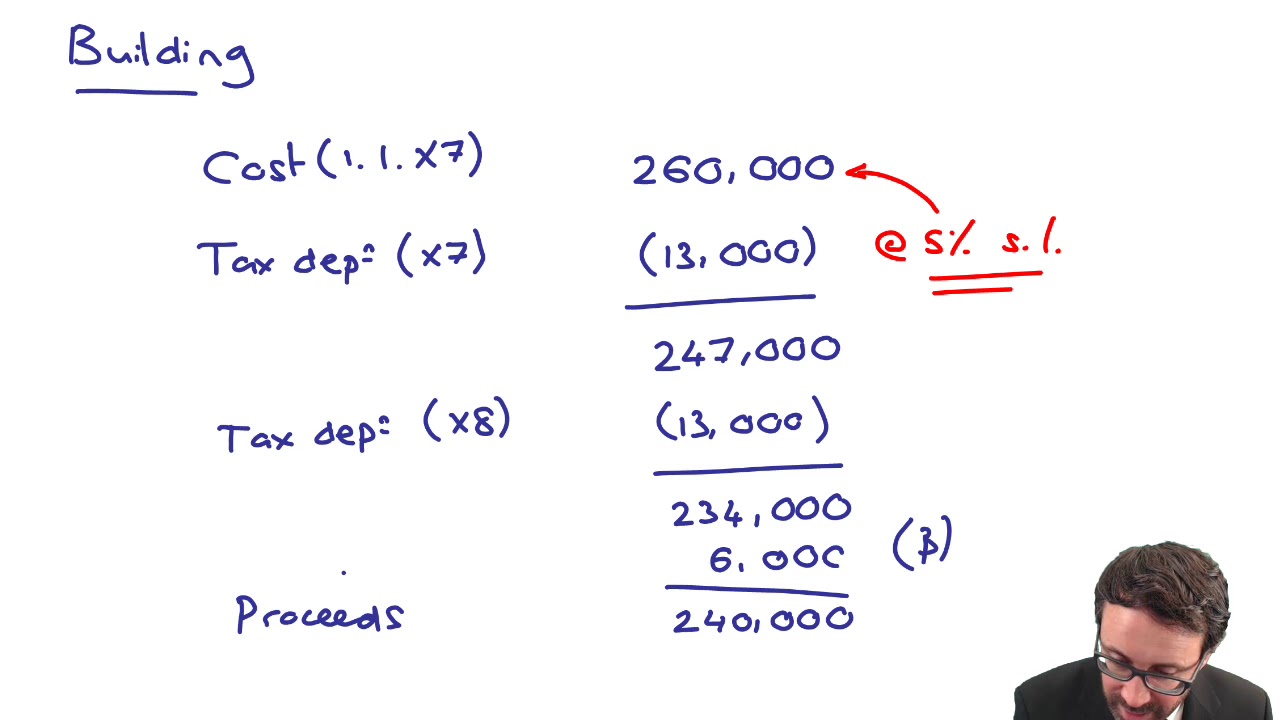 Building
Cost (1.1.X7) 260,000
Tax depⁿ (X7) (13,000) @ 5% s.l.
247,000
Tax depⁿ (X8) (13,000)
234,000
6,000 (β)
Proceeds 240,000